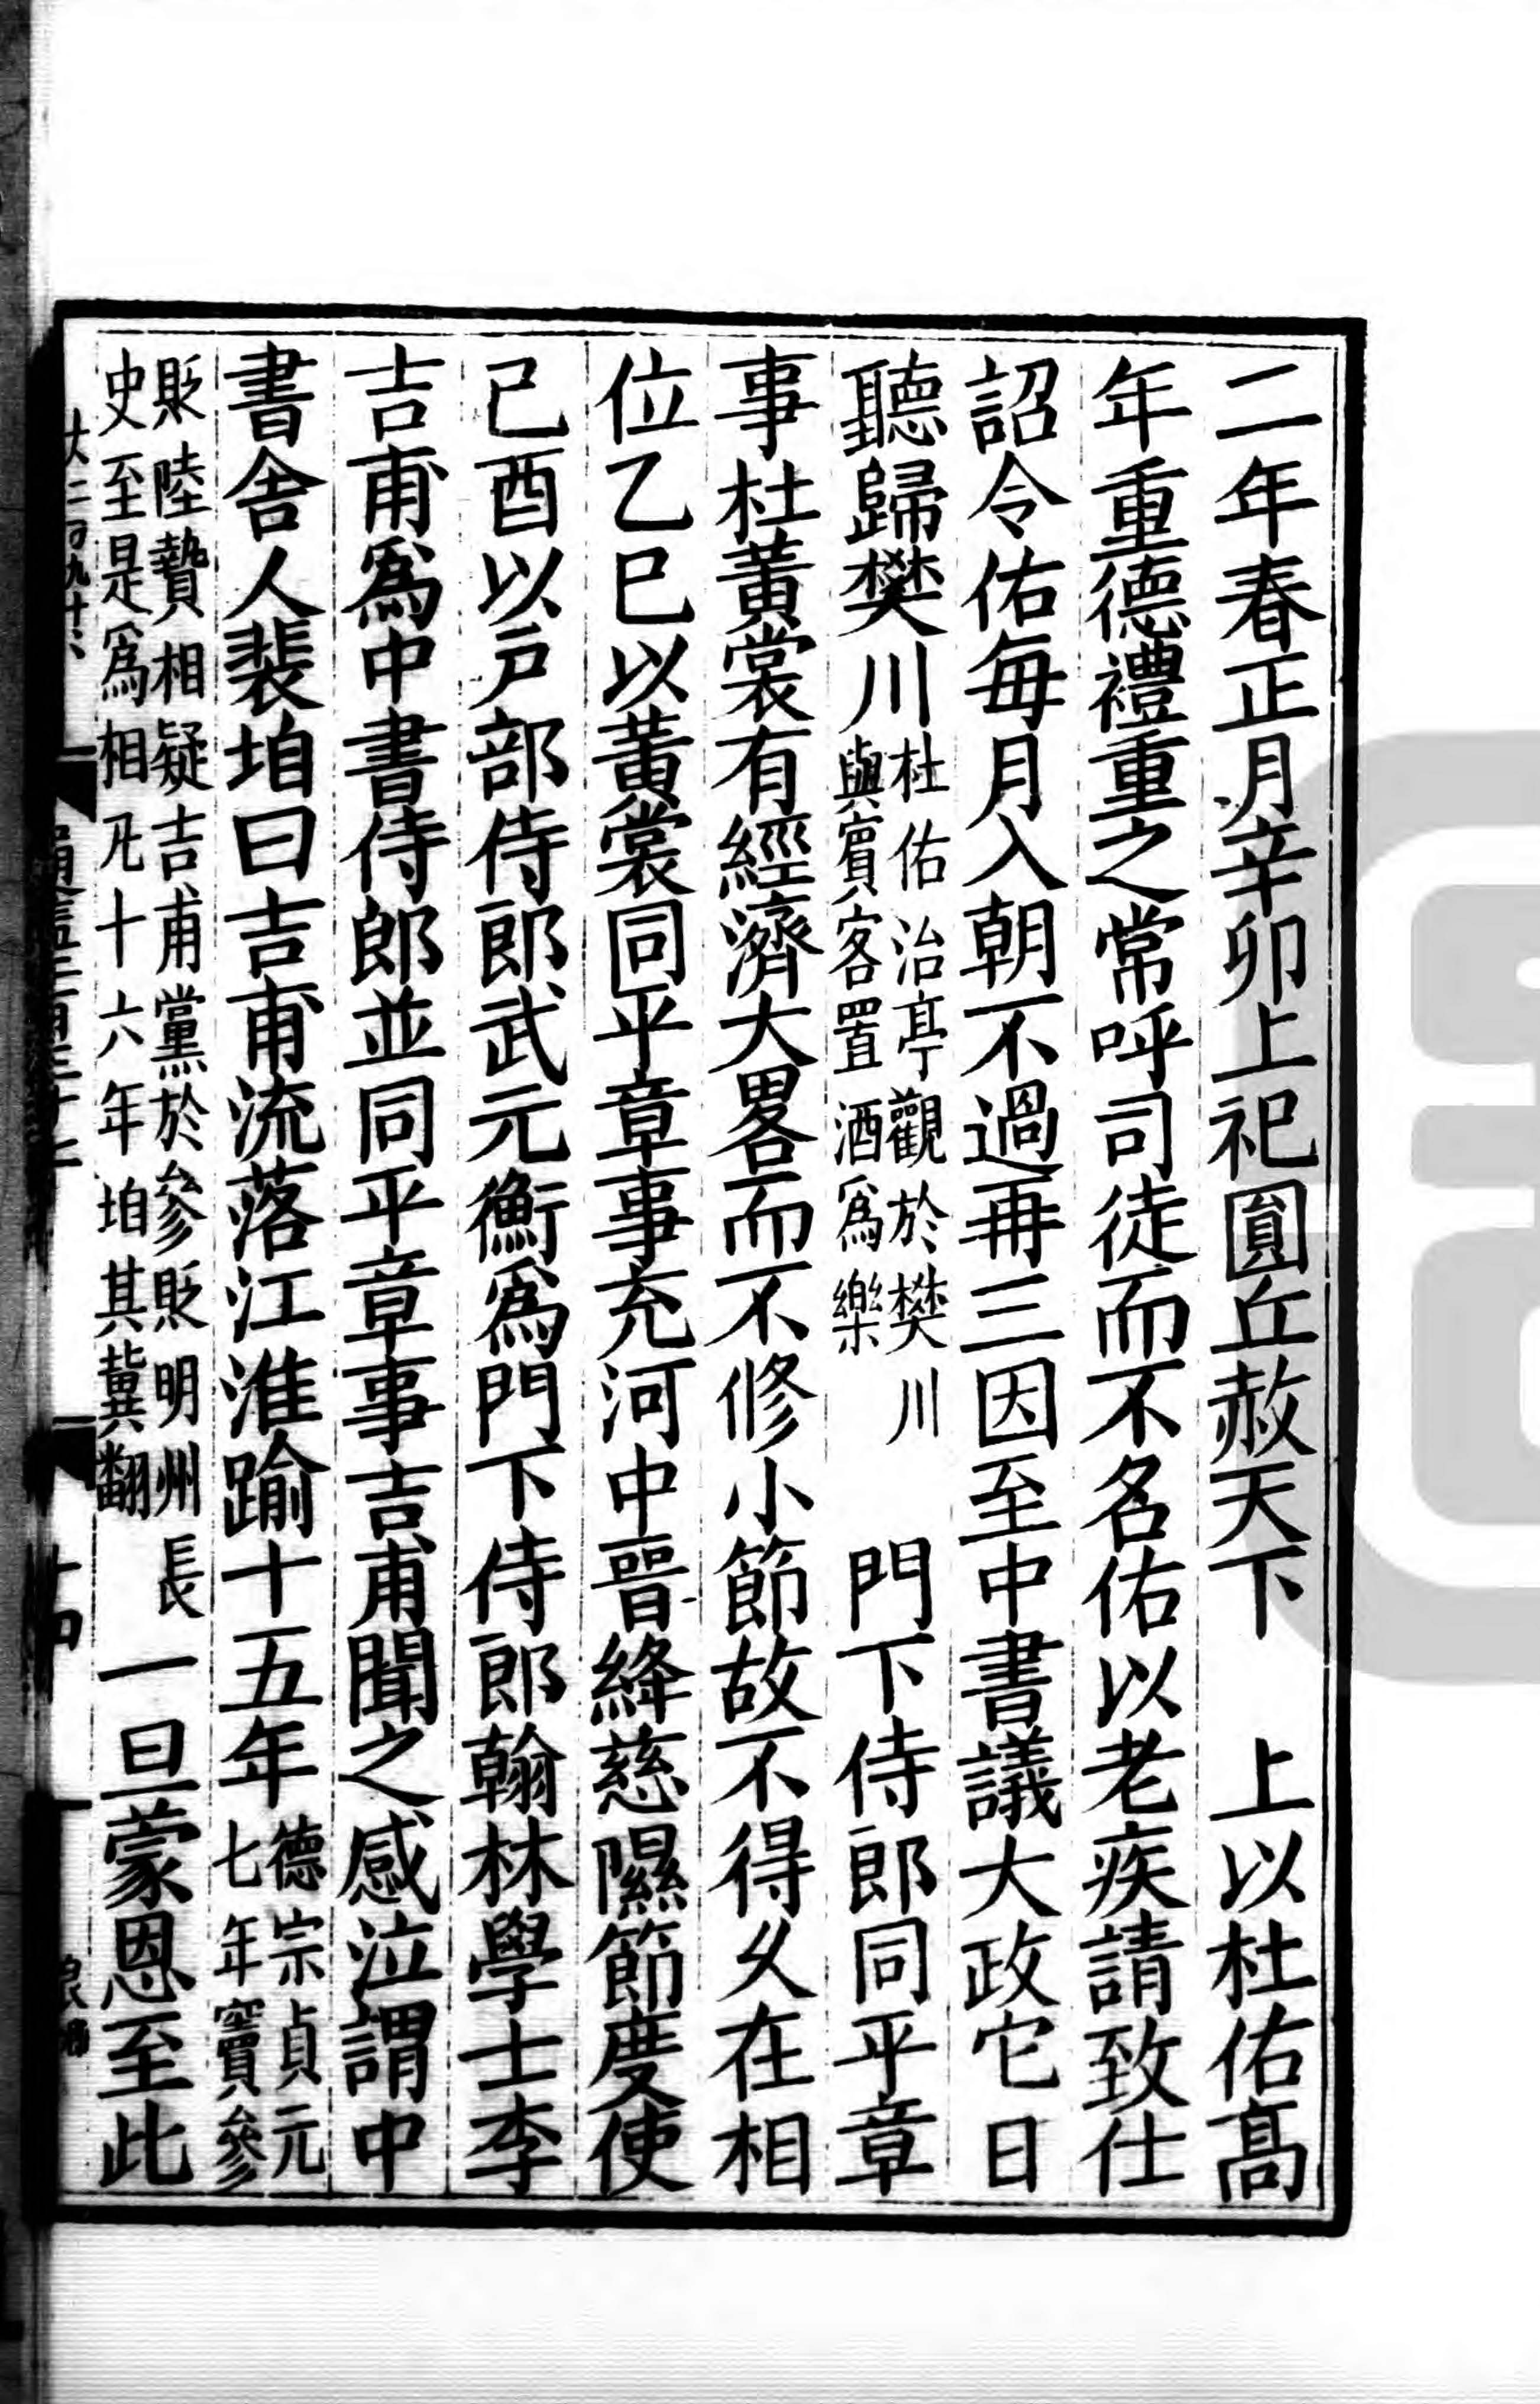 二年春正月辛卯上祀圓丘赦天下　上以杜佑高
年重德禮重之常呼司徒而不名佑以老疾請致仕
詔令佑每月入朝不過再三因至中書議大政它日
聽歸樊川杜佑治亭觀於樊川與賓客置酒爲樂　門下侍郎同平章
事杜黃裳有經濟大畧而不修小節故不得乆在相
位乙巳以黃裳同平章事充河中晉絳慈隰節度使
己酉以戶部侍郎武元衡爲門下侍郎翰林學士李
吉甫爲中書侍郎並同平章事吉甫聞之感泣謂中
書舍人裴垍曰吉甫流落江淮踰十五年德宗貞元七年竇參
貶陸贄相疑吉甫黨於參貶明州長史至是爲相凡十六年垍其冀翻一旦蒙恩至此